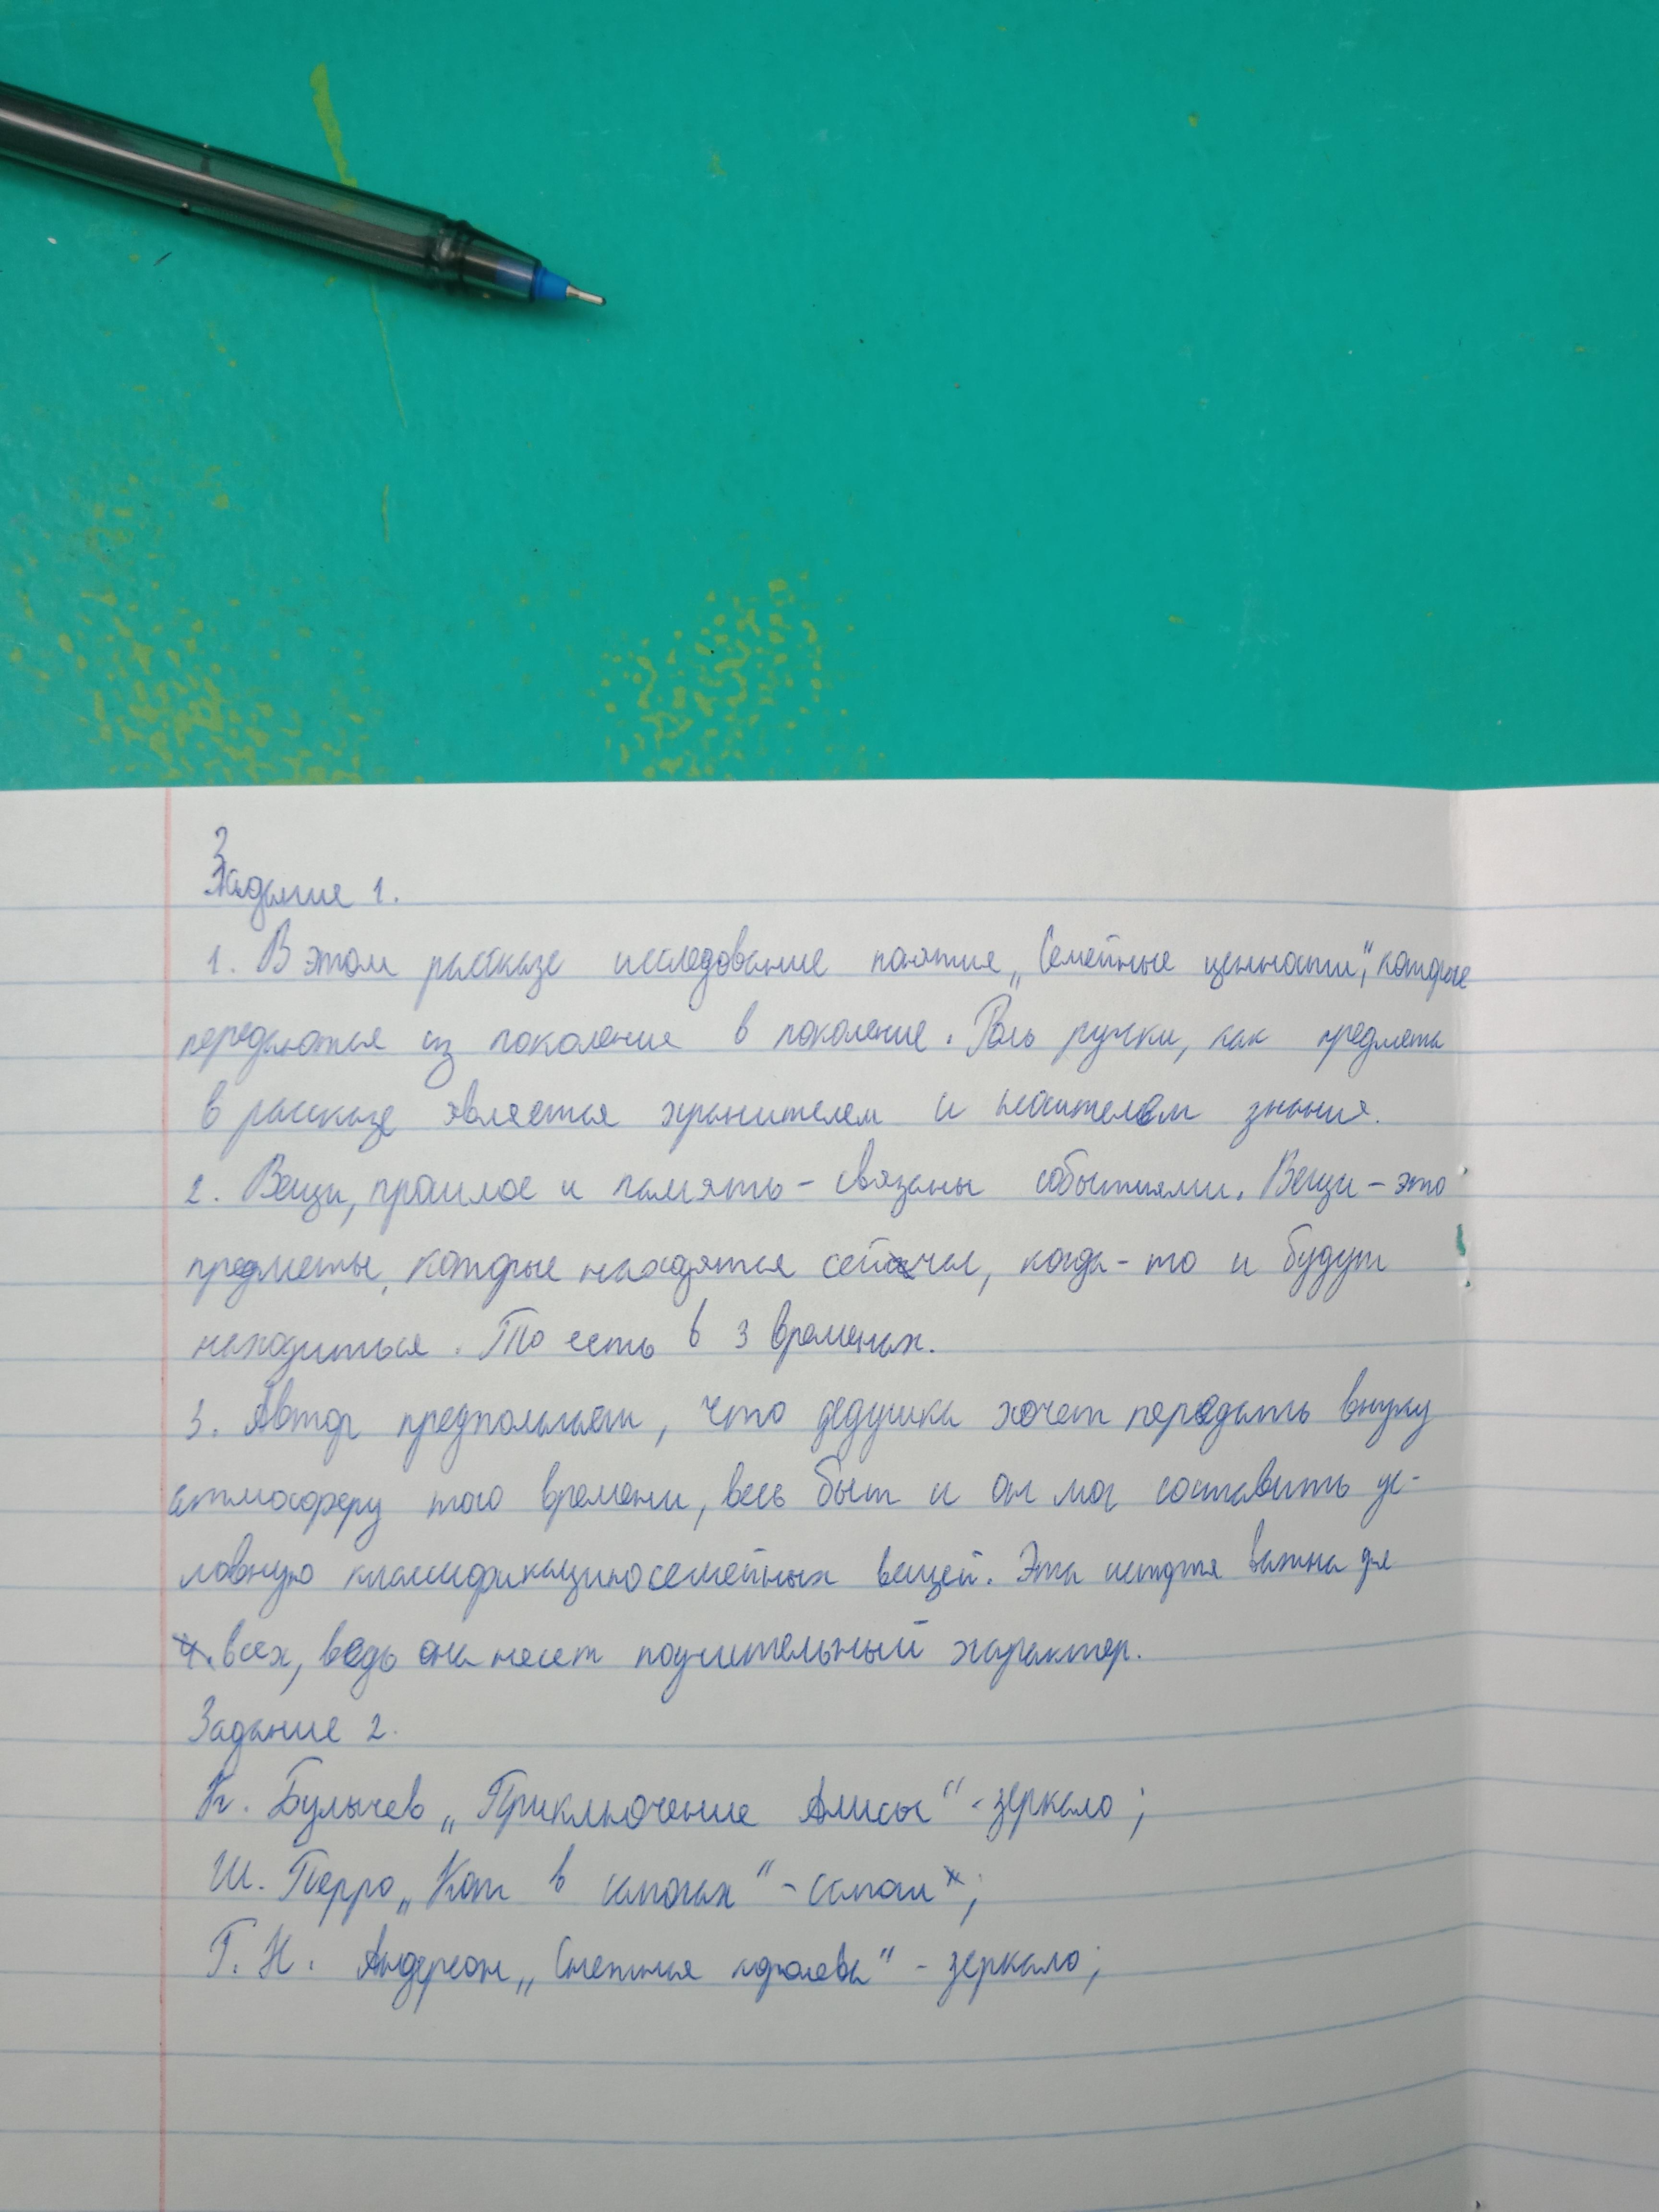 Задание 1.
1. В этом рассказе исследование понятия „Семейные ценности", которые
передаются из поколения в поколение. Роль ручки, как предмета
в рассказе является хранителем и носителем знания.
2. Вещи, прошлое и память - связаны событиями. Вещи - это
предметы, которые находятся сейчас, когда-то и будут
находиться. То есть в 3 временах.
3. Автор предполагает, что дедушка хочет передать внуку
атмосферу того времени, весь быт и он мог составить ус-
ловную классификацию семейных вещей. Эта история важна для
всех, ведь она несет поучительный характер.
Задание 2.
К. Булычев „Приключение Алисы" - зеркало;
Ш. Перро „Кот в сапогах" - сапоги;
Г. Н. Андерсон „Снежная королева" - зеркало;